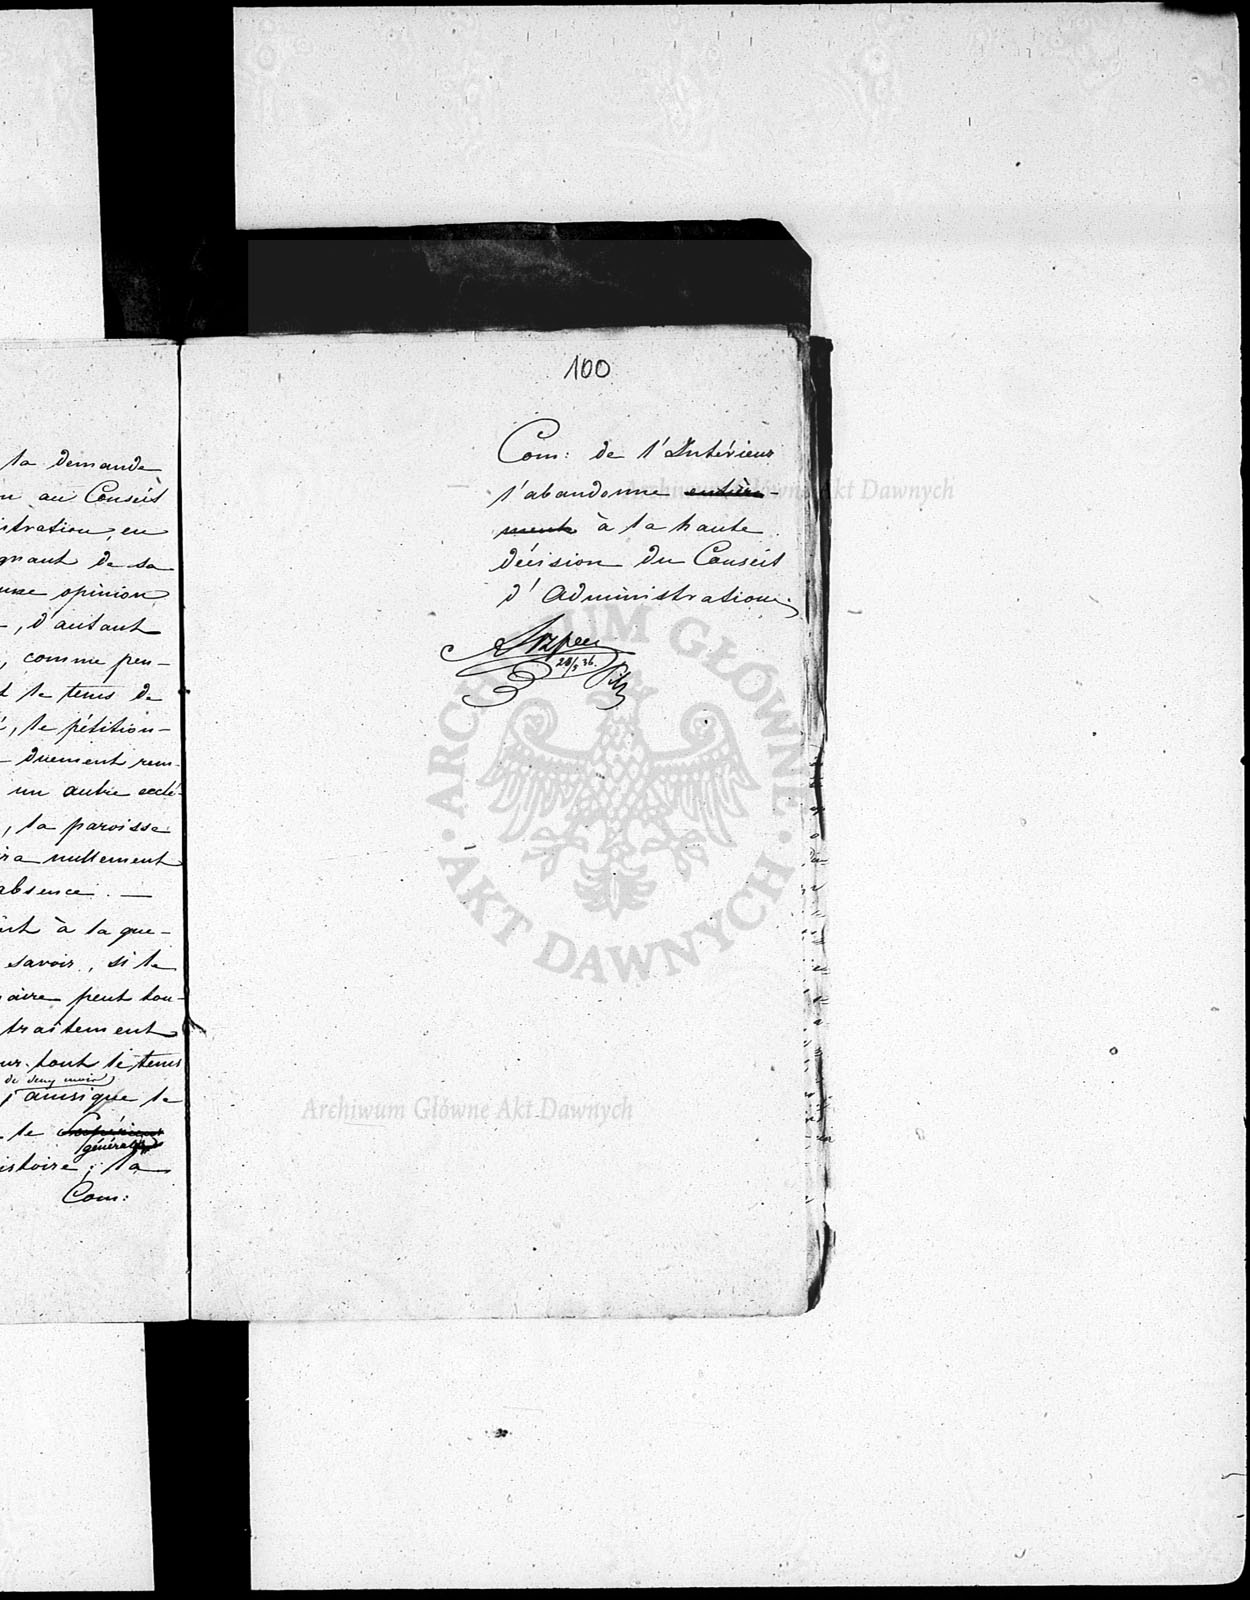 la demande
au Conseil
istration, en
gnant de sa
opinion
, d'autant
, comme pen-
le tems de
, le pétition-
duement rem-
un autre ecclé-
, la paroisse
ra nullement
absence. —
à la que-
savoir, si le
aire peut tou-
traitement
tout le tems
de deux mois
, ainsique le
le Supérieur
général
istoire; la
Com:
100
Com: de l'Intérieur
l'abandonne entière-
ment à la haute
décision du Conseil
d'Administration.
28/3 36.
Archiwum Główne Akt Dawnych
ARCHIWUM GŁÓWNE · AKT DAWNYCH ·
Archiwum Główne Akt Dawnych